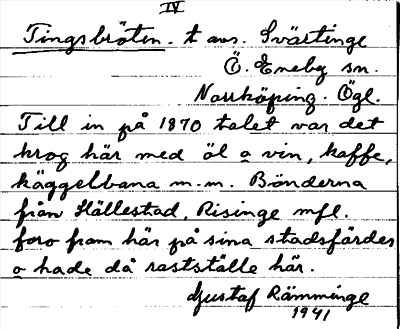 IV
Tingsbröten. t avs. Svärtinge
Ö. Eneby sn.
Norrköping. Ögl.
Till in på 1870 talet var det
krog här med öl o vin, kaffe,
käggelbana m.m. Bönderna
från Hällestad, Risinge mfl.
foro fram här på sina stadsfärder
o hade då rastställe här.
Gustaf Rämminge
1941